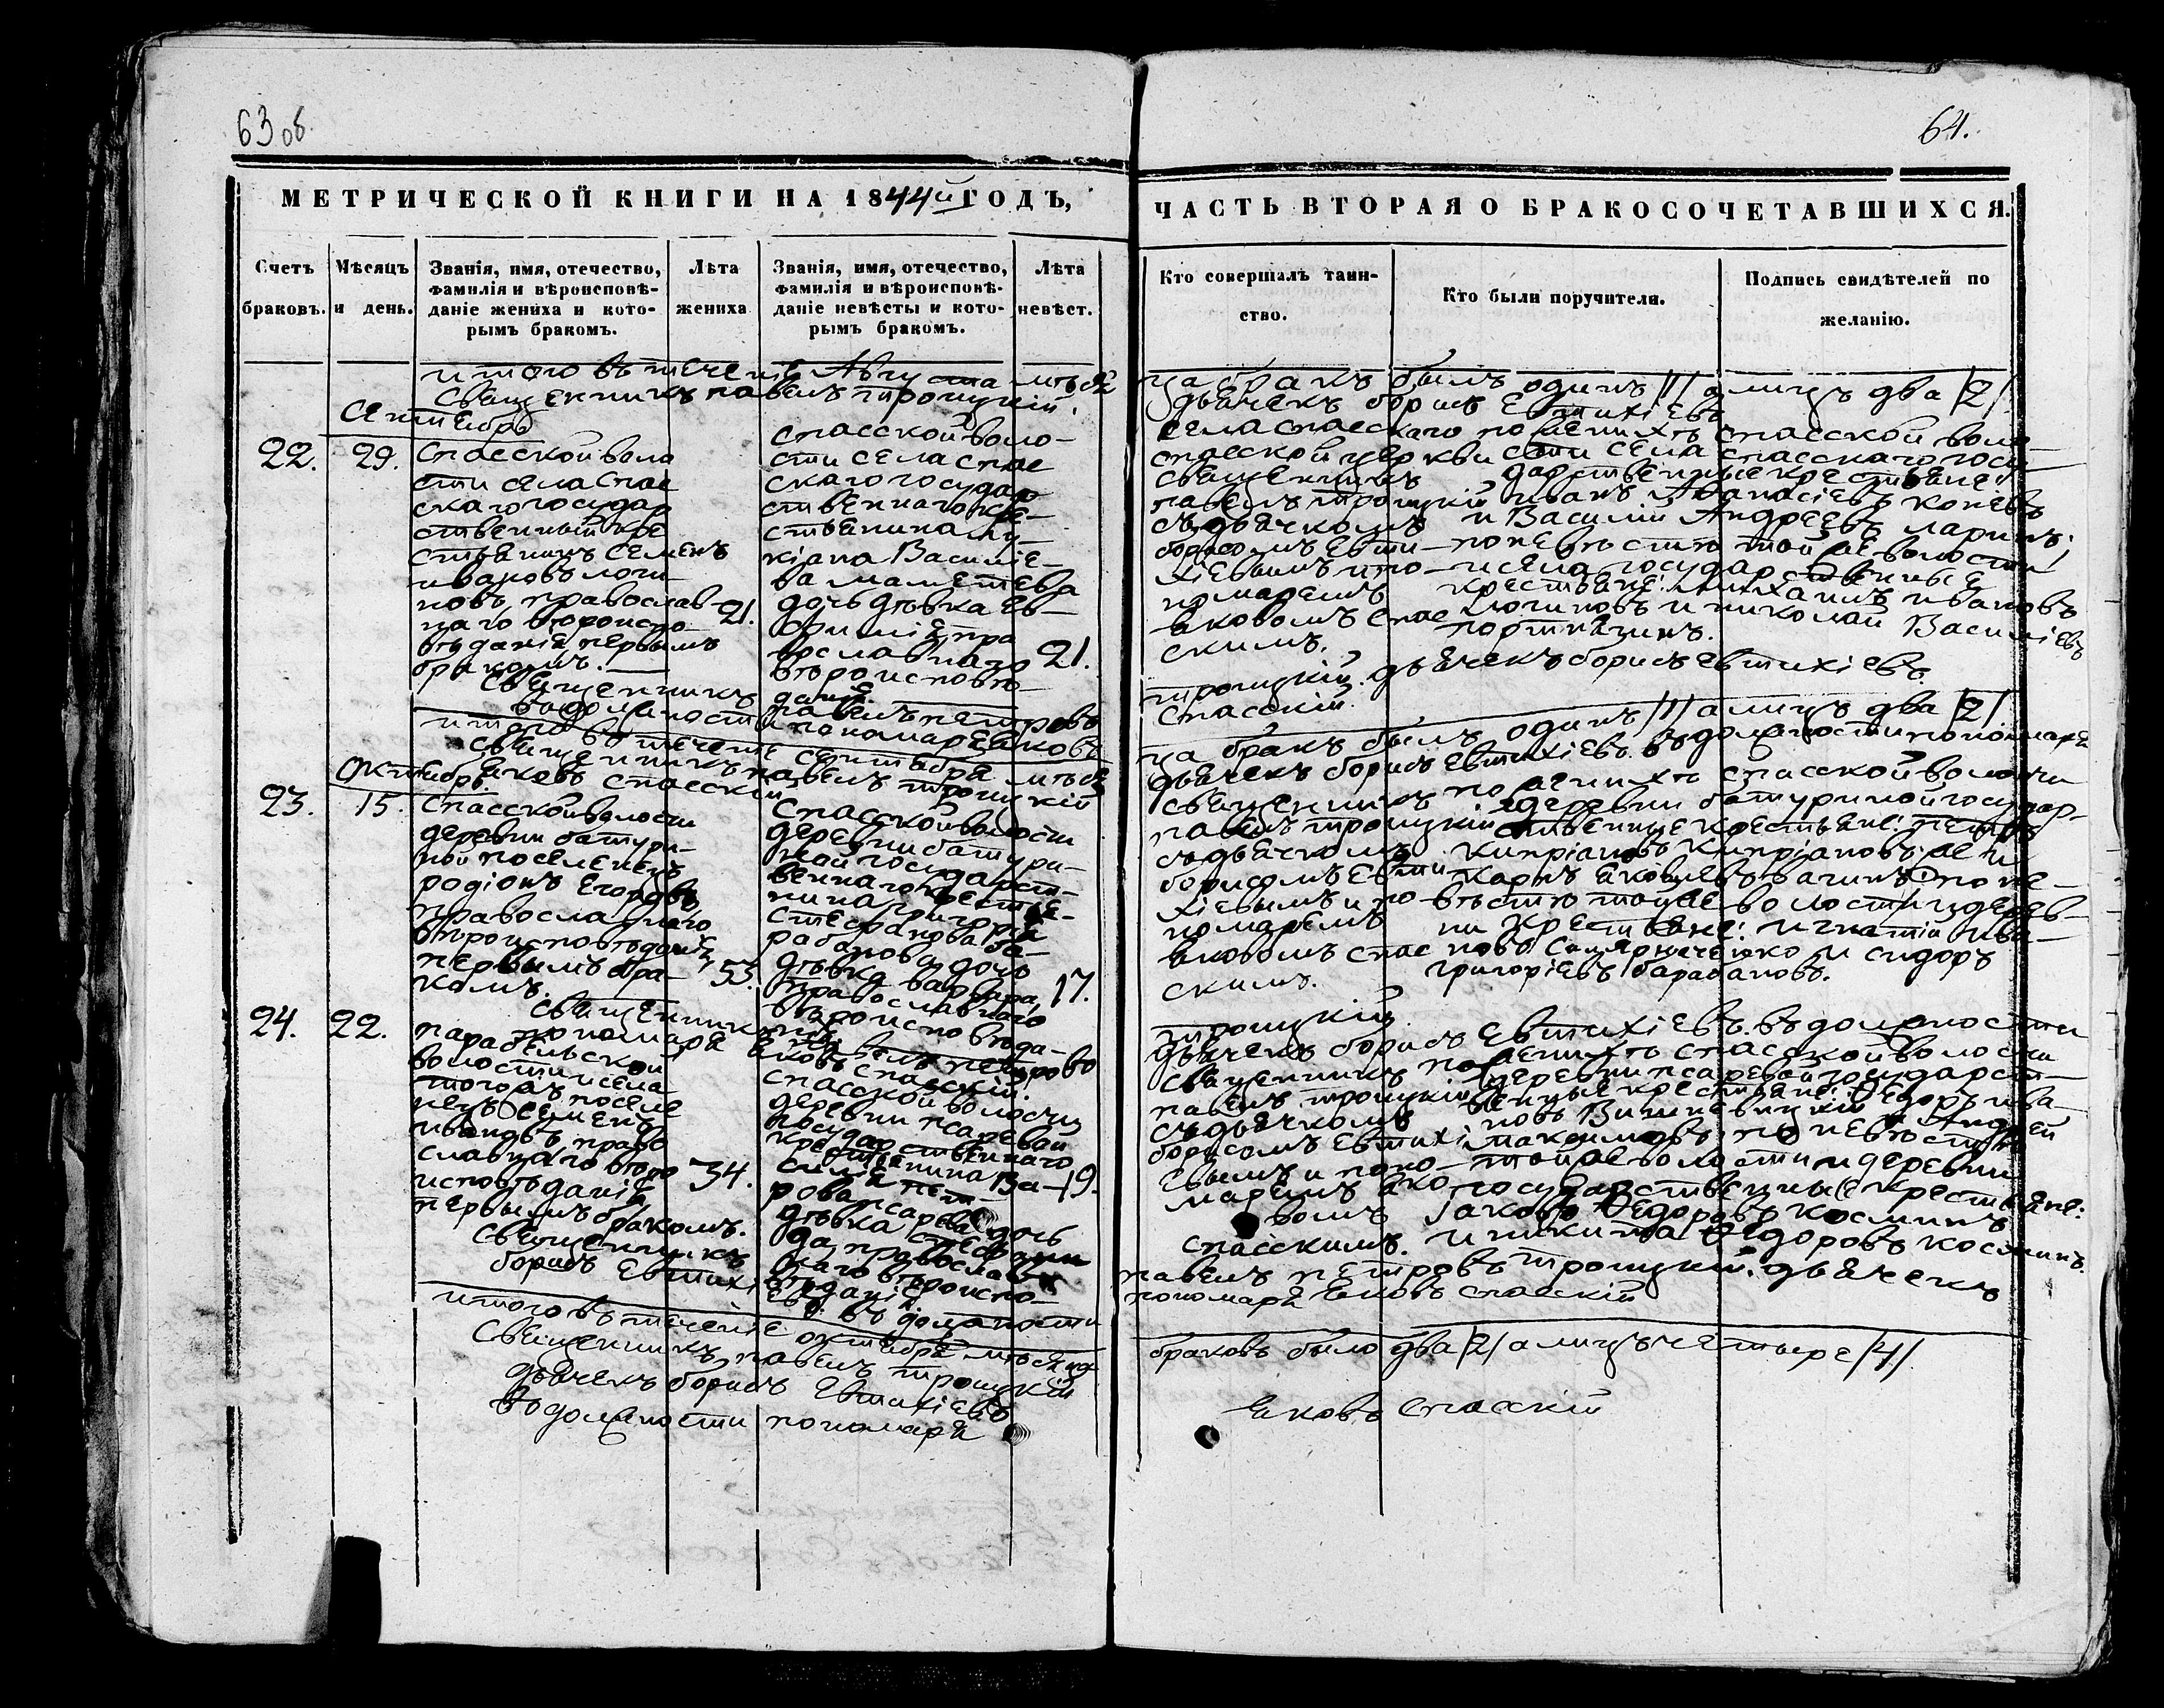 63 об.
64.
МЕТРИЧЕСКОЙ КНИГИ НА 1844й ГОДЪ,
ЧАСТЬ ВТОРАЯ О БРАКОСОЧЕТАВШИХСЯ.
Счетъ браковъ.
Мѣсяцъ и день.
Званія, имя, отечество,
фамилія и вѣроисповѣ-
даніе жениха и кото-
рымъ бракомъ.
Лѣта
жениха
Званія, имя, отечество,
фамилія и вѣроисповѣ-
даніе невѣсты и кото-
рымъ бракомъ.
Лѣта
невѣст.
Кто совершалъ таин-
ство.
Кто были поручители.
Подпись свидѣтелей по
желанію.
итого въ течение Августа мѣся
ца бракъ былъ одинъ /1/ а лицъ два /2/.
Священникъ павелъ троицкій.
дьячекъ борисъ Евтихіевъ
Сентябрь
22.
29.
Спасской воло
сти села Спас
скаго государ
ственный кре
стьянинъ Семенъ
ивановъ логи-
новъ, православ
наго вѣроиспо
вѣданія первымъ
бракомъ.
21.
спасской воло-
сти села спас
скаго государ
ственнаго кре-
стьянина лу-
кіана Василіе-
ва маметева
дочь дѣвка Ев-
фимія пра
вославнаго
вѣроисповѣ-
данія
21.
села спасскаго
спасской церкви
священникъ
павелъ троицкій
съ дьячкомъ
борисомъ Евти-
хіевымъ и по-
номаремъ
яковомъ спас
скимъ.
по женихѣ спасской воло
сти села спасскаго госу-
дарственные крестьяне:
иванъ Афанасіевъ коневъ
и Василій Андреевъ ларинъ;
по невѣстѣ той же волости
и села государственные
крестьяне: михаилъ ивановъ
логиновъ и николай Василіевъ
портнягинъ.
Священникъ павелъ петровъ
троицкій. дьячекъ борисъ Евтихіевъ.
въ должности пономаря яковъ
спасскій.
итого въ течение сентября мѣся
ца бракъ былъ одинъ /1/ а лицъ два /2/
священникъ павелъ троицкій
дьячекъ борисъ Евтихіевъ. въ должности пономаря
яковъ спасскій
Октябрь
23.
15.
Спасской волости
деревни батури-
ной поселенецъ
родіонъ Егоровъ
православнаго
вѣроисповѣданія
первымъ бра-
комъ.
53.
Спасской волости
деревни батури-
ной государст-
веннаго крестья-
нина григорія
стефанова ба-
рабанова дочь
дѣвка варвара,
православнаго
вѣроисповѣда-
нія
17.
священникъ
павелъ троицкій
съ дьячкомъ
борисомъ Евти
хіевымъ и по
номаремъ
яковомъ спас
скимъ.
по женихѣ спасской волости
деревни батуриной государ-
ственные крестьяне: петръ
кипріановъ кипріановъ же и
карпъ яковлевъ по не-
вѣстѣ той же волости и дерев-
ни крестьяне: игнатій ива-
новъ и сидоръ
григоріевъ барабановъ.
Священникъ павелъ петровъ
троицкій
дьячекъ борисъ Евтихіевъ. въ должности
пономаря яковъ спасскій.
24.
22.
парабельской
волости и села
тогожъ поселе
нецъ Семенъ
ивановъ право
славнаго вѣро
исповѣданія
первымъ бракомъ.
34.
спасской волости
деревни псаревой
государственнаго
крестьянина Ва-
силія пет
рова псарева дочь
дѣвка степани
да православ
наго вѣроиспо-
вѣданія
19.
священникъ
павелъ троицкій
съ дьячкомъ
борисомъ Евтихі
евымъ и поно-
маремъ яко
вомъ
спасскимъ.
по женихѣ спасской волости
деревни псаревой государст-
венные крестьяне: Ѳедоръ ива-
новъ Вишневицкій и Андрей
максимовъ; по невѣстѣ
той же волости и деревни
государственные крестьяне:
іаковъ Ѳедоровъ косминъ
и никита Ѳедоровъ косминъ.
Священникъ
павелъ петровъ троицкій. дьячекъ
борисъ Евтихіевъ. въ должности
пономаря яковъ спасскій
итого въ течение октября мѣсяца
браковъ было два /2/ а лицъ четыре /4/.
Священникъ павелъ троицкій
дьячекъ борисъ Евтихіевъ
въ должности пономаря
яковъ спасскій